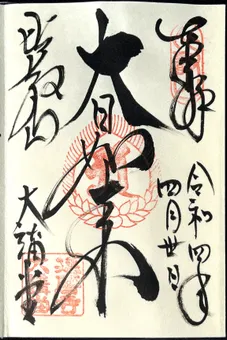 奉拝
令和四年
四月廿日
大日如来
比叡山
大講堂